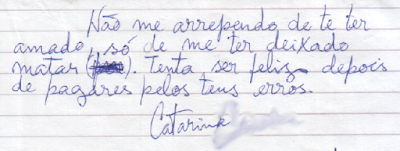 Não me arrependo de te ter
amado, só de me ter deixado
matar ( ). Tenta ser feliz depois
de pagares pelos teus erros.
Catarina